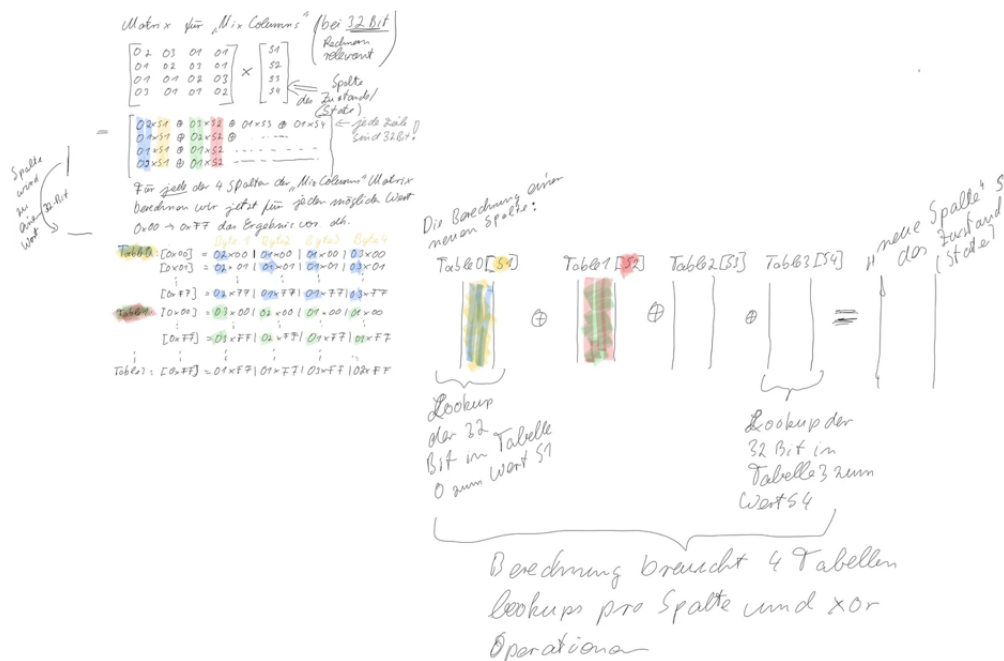 Matrix für „Mix Columns" (bei 32 Bit
Rechnen
relevant)
02 03 01 01
01 02 03 01
01 01 02 03
03 01 01 02
×
S1
S2
S3
S4
Spalte
des Zustands/
(State)
= 02×S1 ⊕ 03×S2 ⊕ 01×S3 ⊕ 01×S4
01×S1 ⊕ 02×S2 ⊕
01×S1 ⊕ 01×S2
03×S1 ⊕ 01×S2
jede Zeile
sind 32Bit!
Spalte
wird
zu
einem 32-Bit
Wort
Für jede der 4 Spalten der „Mix Columns" Matrix
berechnen wir jetzt für jeden möglichen Wert
0x00 → 0xFF das Ergebnis vor
Byte 1 Byte 2 Byte 3 Byte 4
Table0: [0x00] = 02×00 | 01×00 | 01×00 | 03×00
[0x01] = 02×01 | 01×01 | 01×01 | 03×01
[0xFF] = 02×FF | 01×FF | 01×FF | 03×FF
Table1: [0x01] = 03×00 | 02×00 | 01×00 | 01×00
[0xFF] = 03×FF | 02×FF | 01×FF | 01×FF
Table3: [0xFF] = 01×FF | 01×FF | 03×FF | 02×FF
Die Berechnung einer
neuen Spalte:
Table0[S1] Table1[S2] Table2[S3] Table3[S4]
⊕ ⊕ ⊕ =
„neue Spalte" S
des Zustand
(State)
Lookup
der 32
Bit in Tabelle
0 zum Wert S1
Lookup der
32 Bit in
Tabelle 3 zum
Wert S4
Berechnung braucht 4 Tabellen
lookups pro Spalte und xor
Operationen